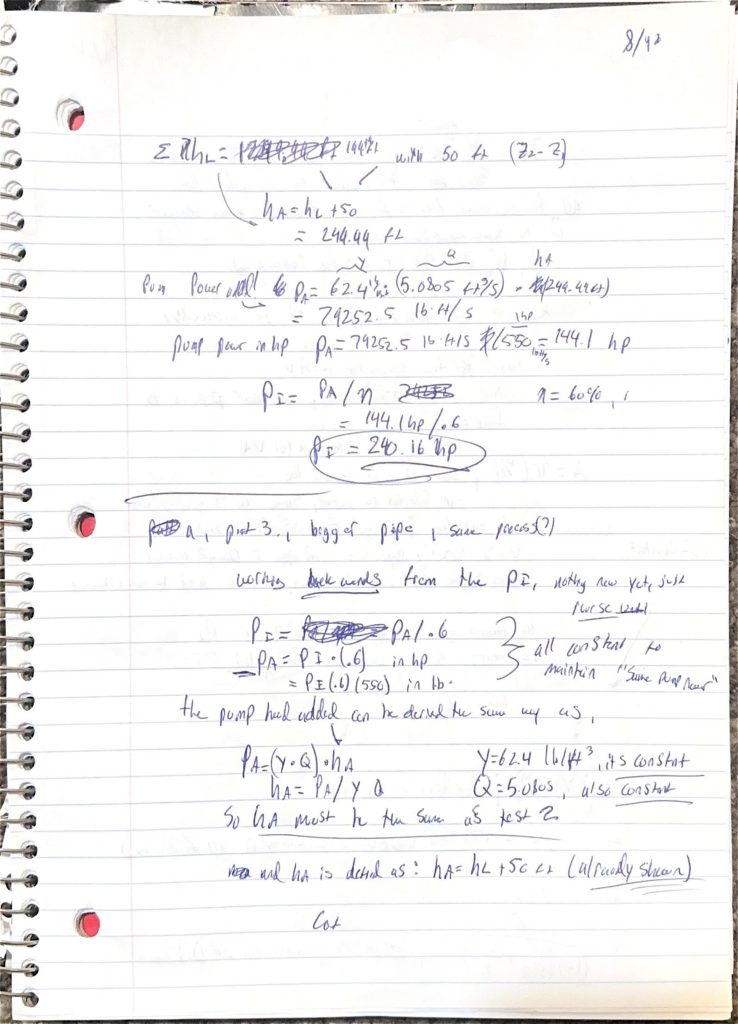 8/42
Σ hL = with 50 ft (Z2-Z1)
hA = hL +50
= 244.44 ft
γ Q hA
Power PA = 62.4 (5.0805 ft³/s) · (244.44 ft)
= 79252.5 lb·ft/s
1hp
pump power in hp PA = 79252.5 lb ft/s /550 = 144.1 hp
PI = PA/η η = 60%,
= 144.1 hp/.6
PI = 240.16 hp
a, part 3., bigger pipe, same process(?)
working backwards from the PI, nothing new yet, just
PI = PA/.6
PA = PI·(.6) in hp all constant to
= PI(.6)(550) in lb. maintain "Same pump power"
the pump head added can be derived the same way as,
PA=(γ·Q)·hA γ=62.4 lb/ft³, its constant
hA = PA/γ Q Q=5.0805, also constant
So hA must be the same as test 2
and hA is derived as: hA = hL +50 ft (already shown)